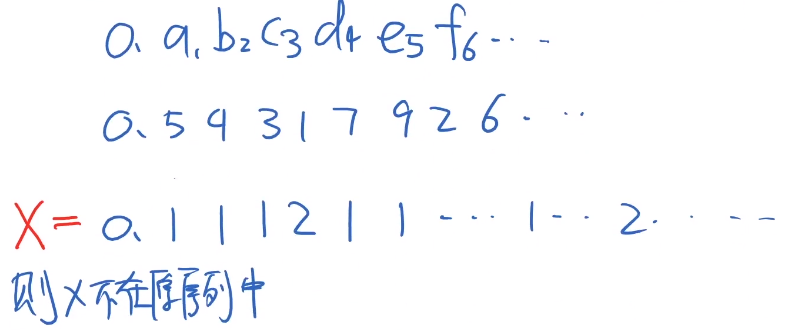 0. a₁ b₂ c₃ d₄ e₅ f₆ ...
0. 5 9 3 1 7 9 2 6 ...
X = 0. 1 1 1 2 1 1 ... 1 ... 2 ...
则 X 不在原序列中